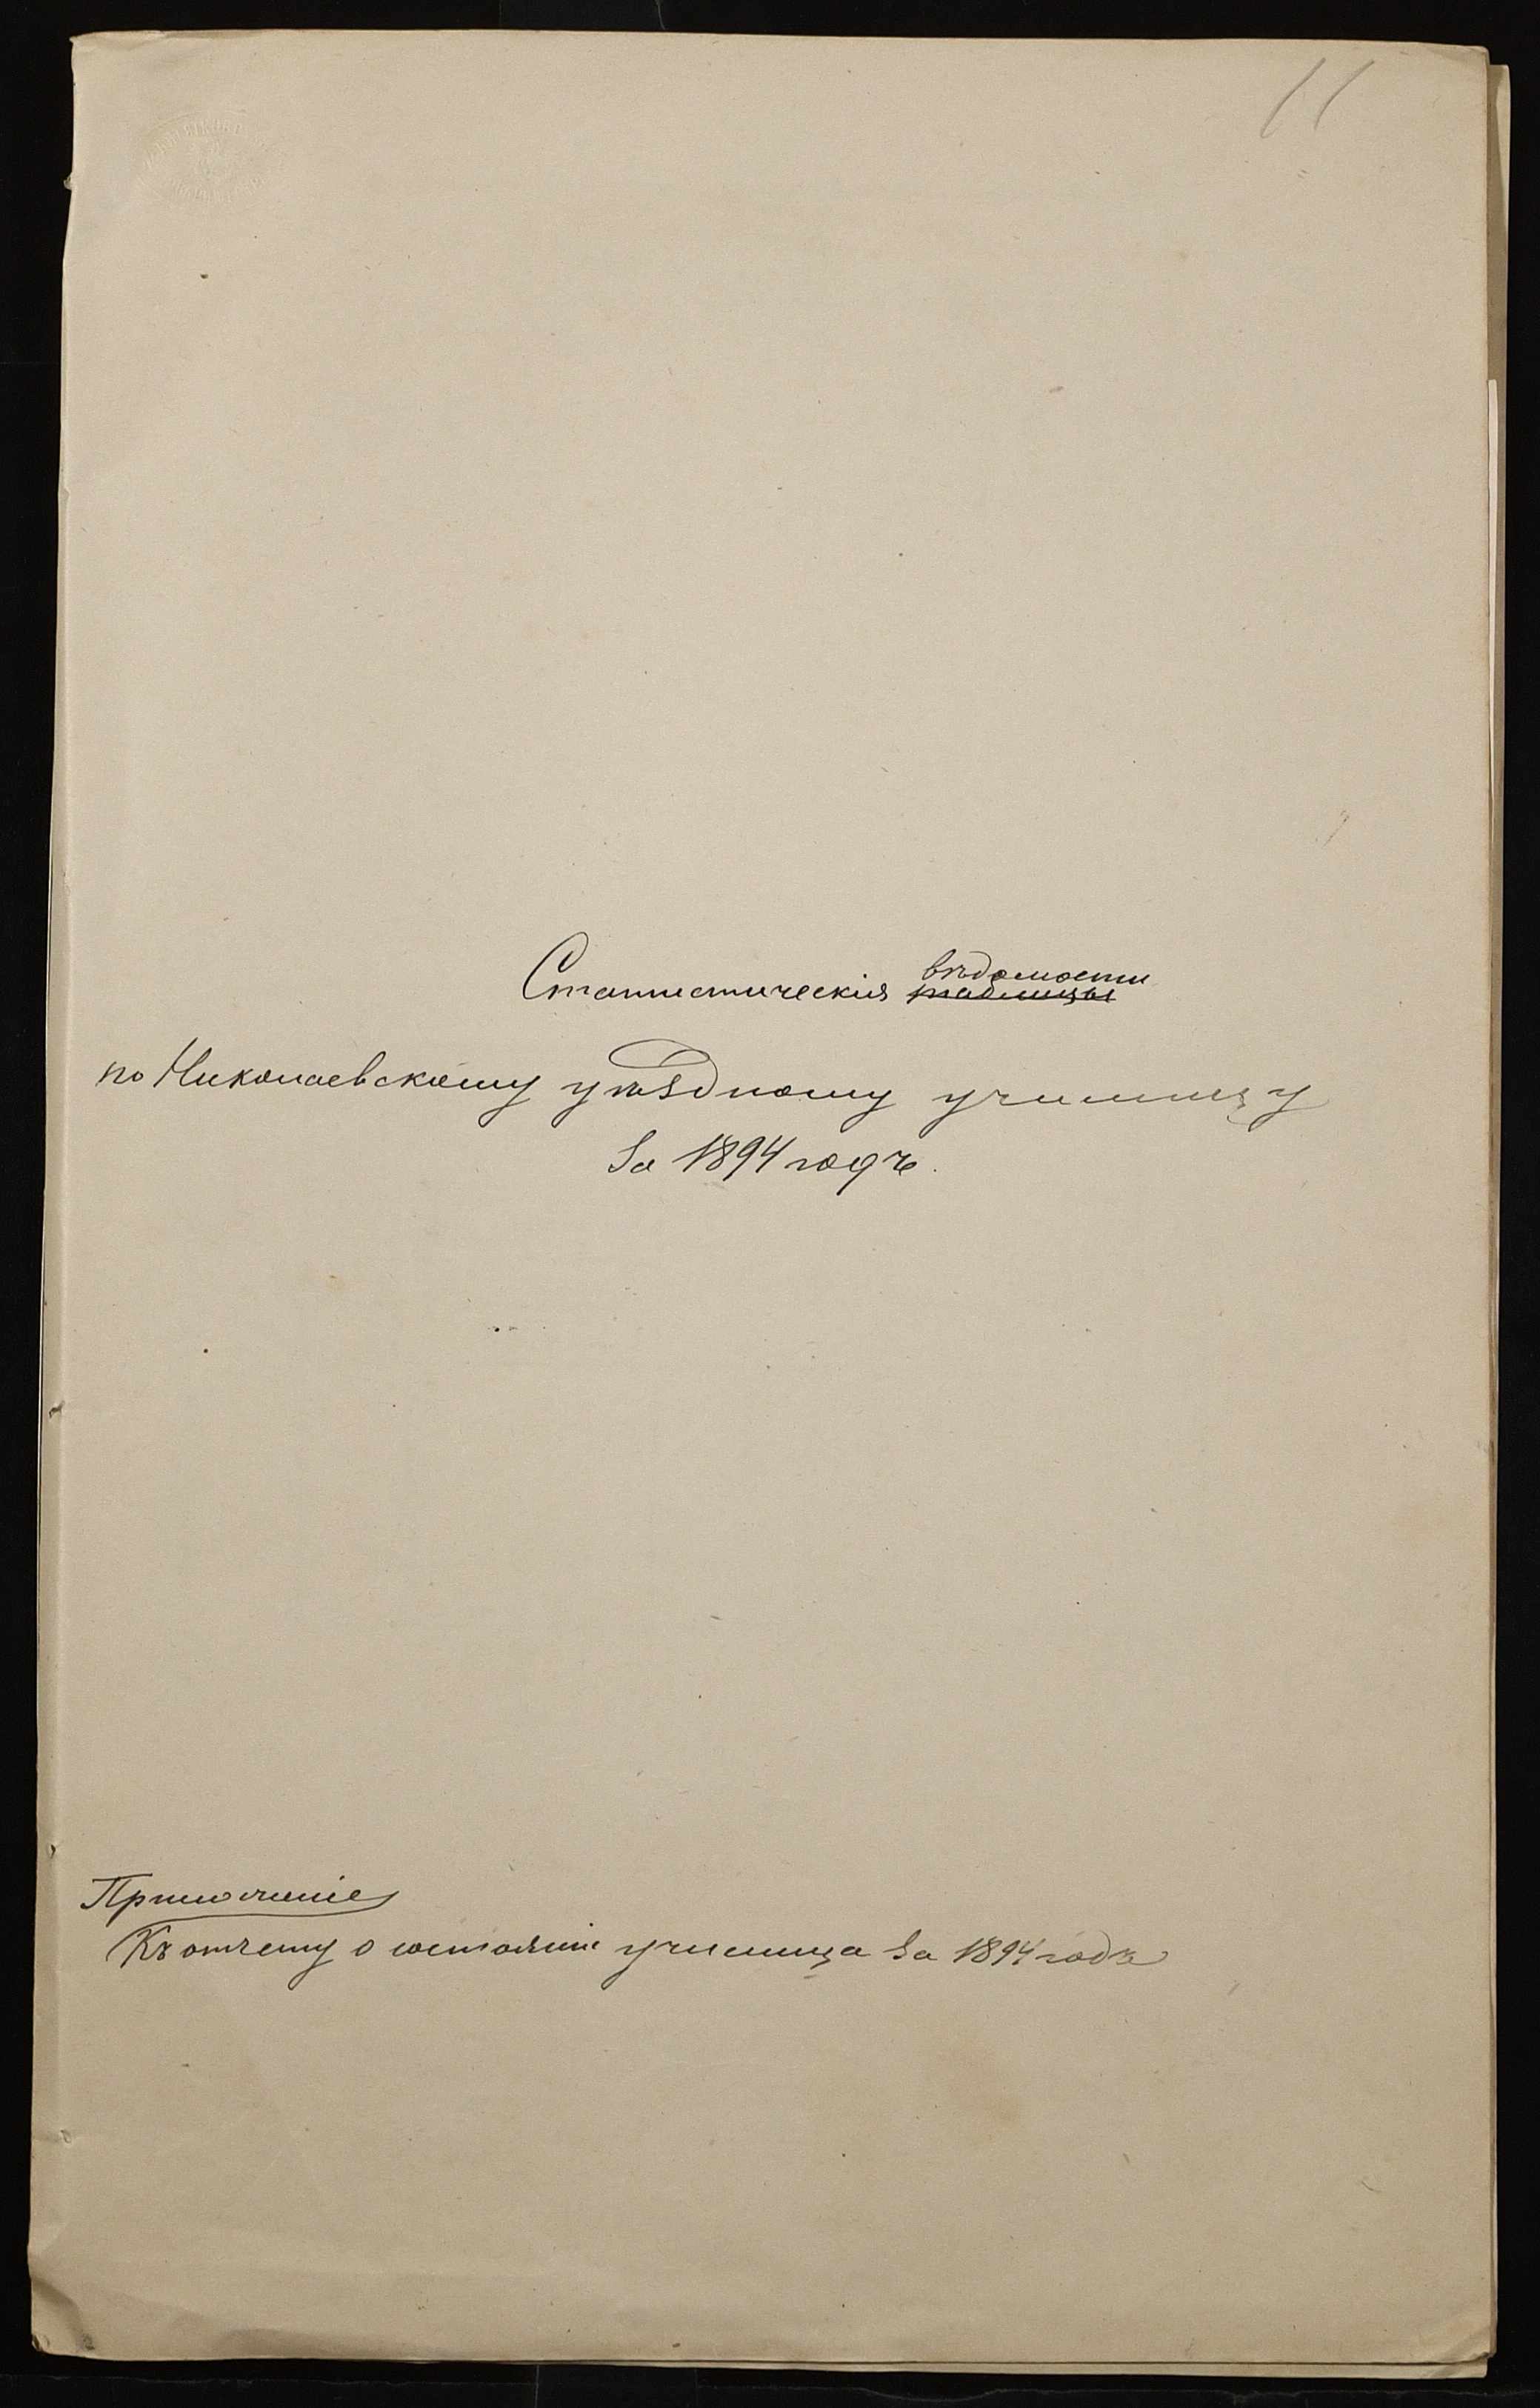 11
Статистическия ведомости таблицы
по Николаевскому уѣздному училищу
За 1894 годъ.
Приложеніе
Къ отчету о состояніи училища за 1894 годъ